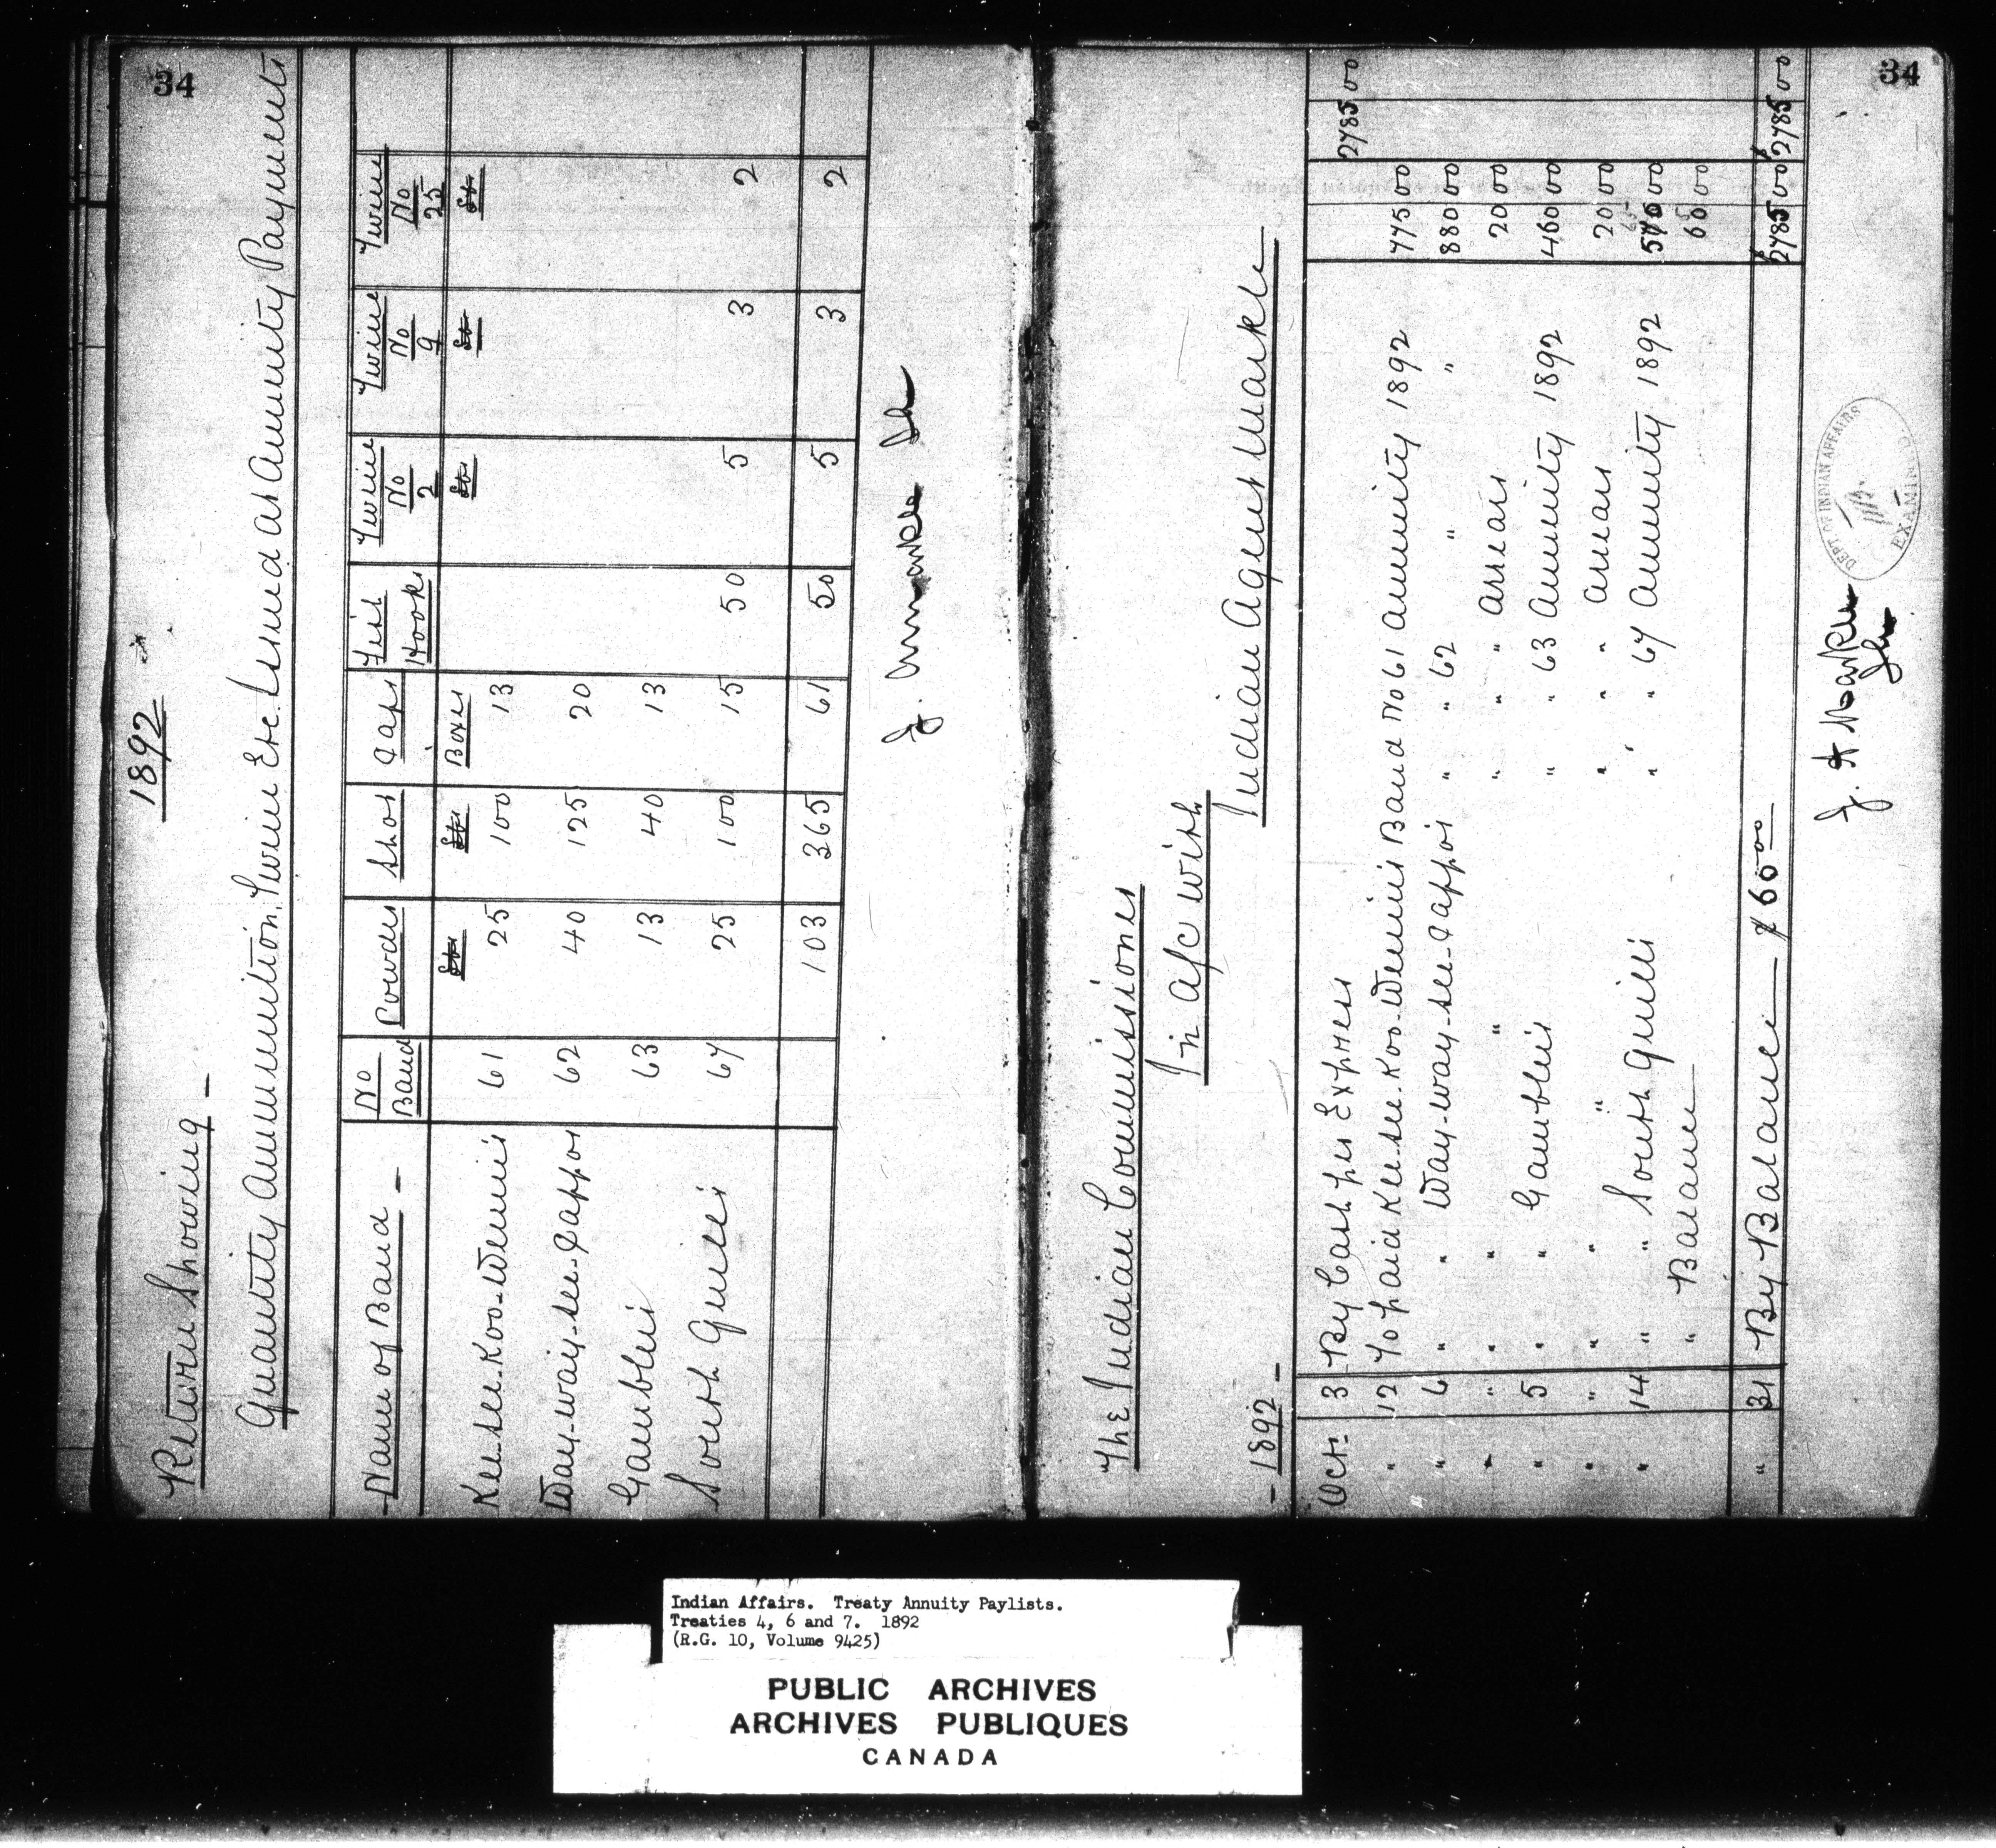 34
1892
Return Showing -
Quantity Ammunition, Twine Etc. Issued at Annuity Payments
Name of Band - | No Band | Powder | Shot | Caps | Fish Hooks | Twine No 2 | Twine No 9 | Twine No 25
lbs | lbs | Boxes | lbs | lbs | lbs
Kee-see-Koo-Wenin's 61 25 100 13
Way-way-see-Cappo's 62 40 125 20
Gambler's 63 13 40 13
South Quill's 67 25 100 15 50 5 3 2
103 365 61 50 5 3 2
J. A. Markle
IA
34
The Indian Commissioner
In a/c with
Indian Agent Markle
- 1892 -
Oct. 3 By Cash per Express 2785 00
" 12 To paid Kee-see-Koo-Wenin's Band No 61 Annuity 1892 775 00
" 6 " " Way-way-see-Cappo's " " 62 " " 880 00
" " " " " " " Arrears 20 00
" 5 " " Gambler's " " 63 Annuity 1892 460 00
" " " " " " " Arrears 20 00
" 14 " " South Quill's " " 67 Annuity 1892 00
" Balance 00
$2785 00 $2785 00
" 31 By Balance - $ 00
J. A. Markle
IA
DEPT OF INDIAN AFFAIRS
EXAMINED
Indian Affairs. Treaty Annuity Paylists.
Treaties 4, 6 and 7. 1892
(R.G. 10, Volume 9425)
PUBLIC ARCHIVES
ARCHIVES PUBLIQUES
CANADA